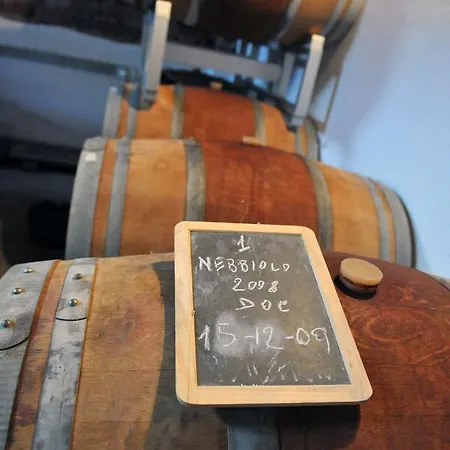 1
NEBBIOLO
2008
DOC
15-12-09